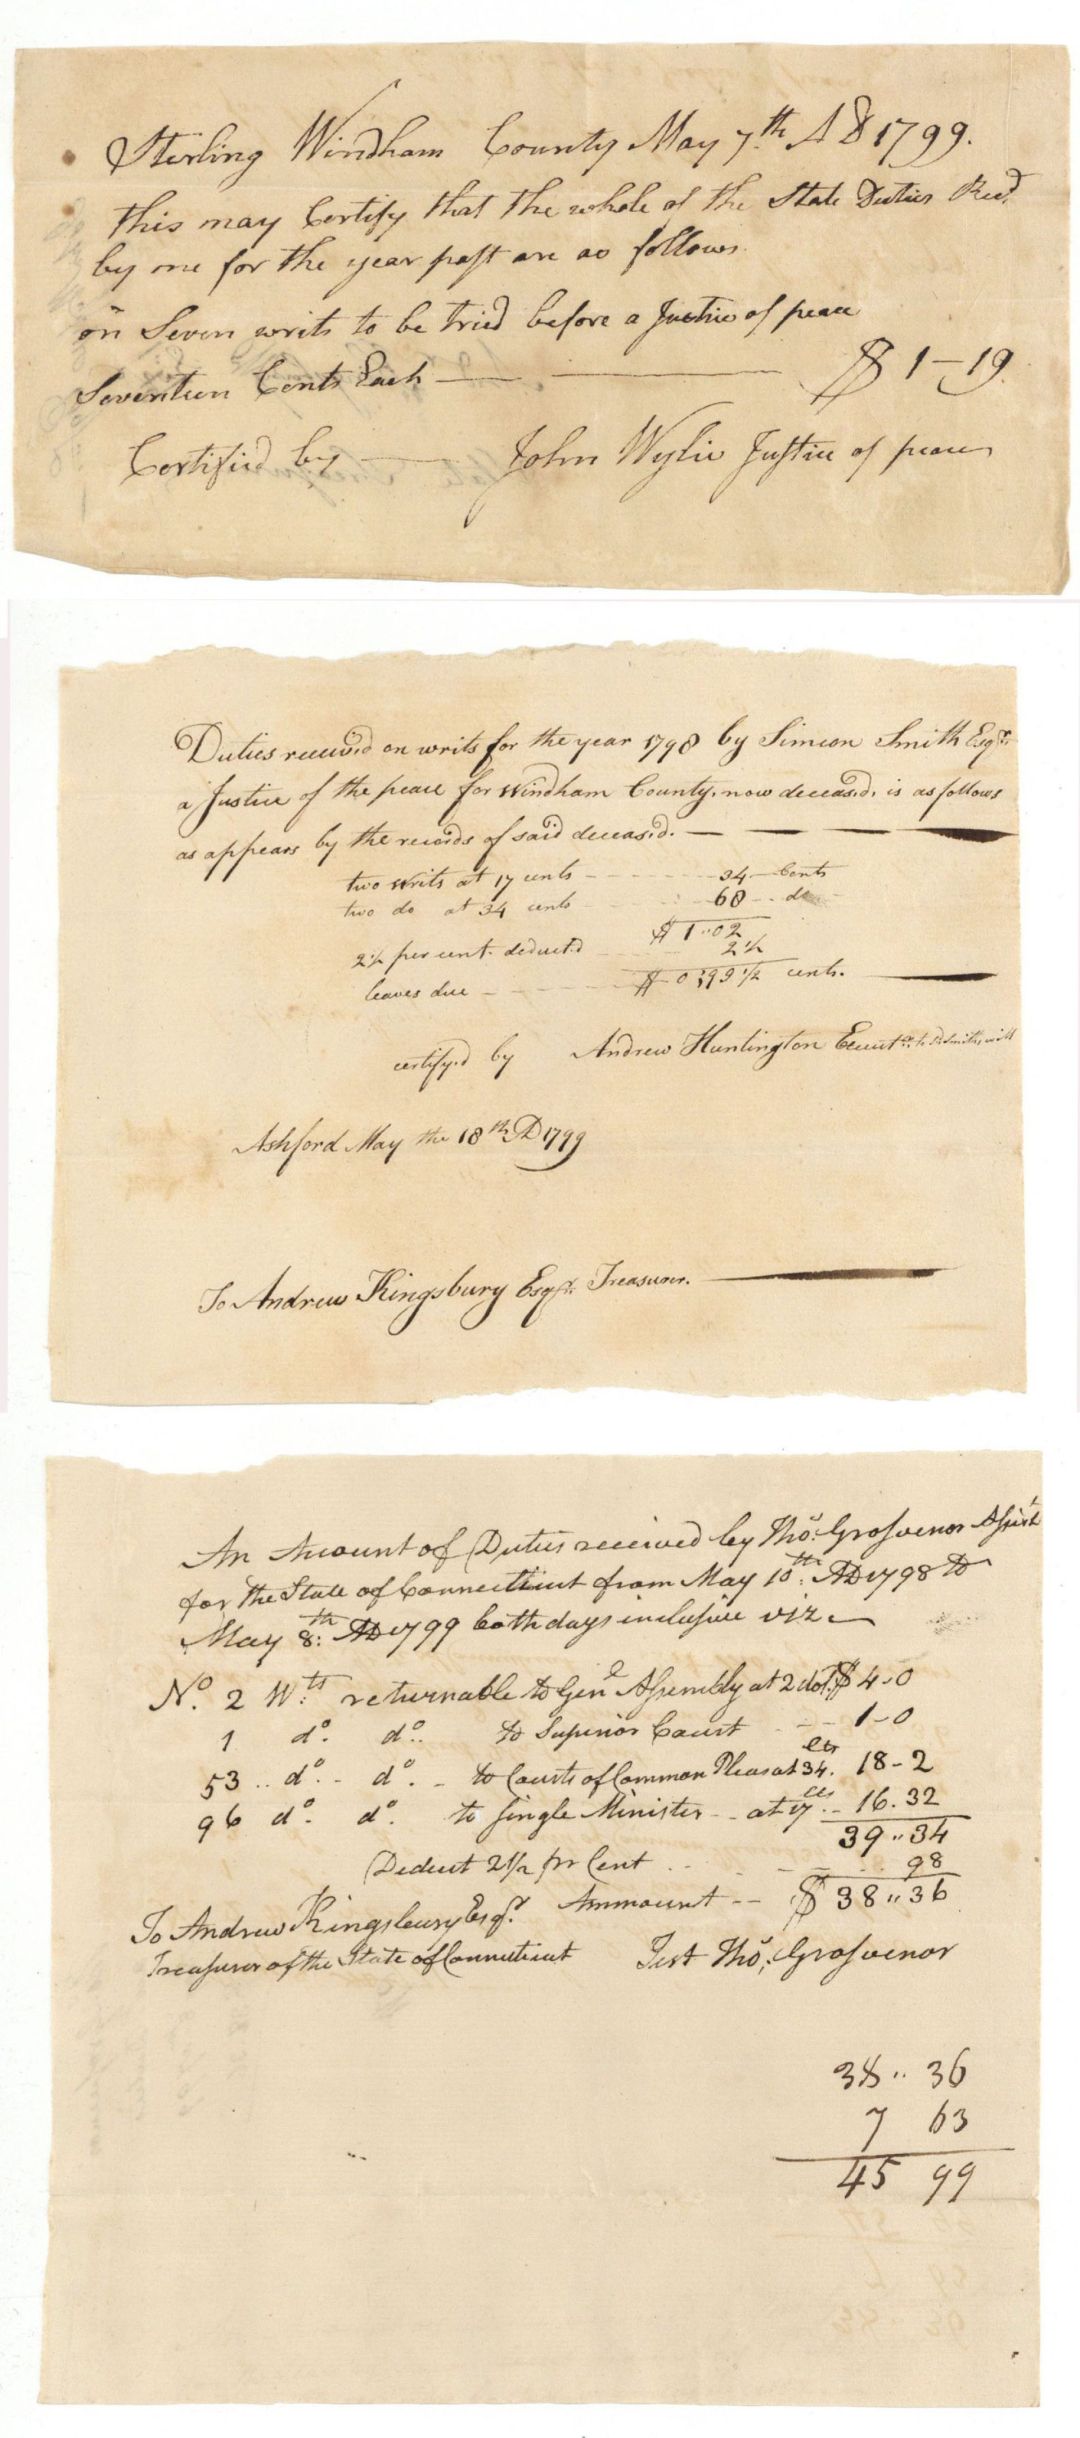 Sterling Windham County May 7th AD 1799.
this may Certify that the whole of the State Duties Recd.
by me for the year past are as follows
on Seven writs to be tried before a Justice of peace
Seventeen Cents Each — $ 1-19
Certified by — John Wylie Justice of peace
Duties received on writs for the year 1798 by Simeon Smith Esqr.
a Justice of the peace for Windham County, now deceasd, is as follows
as appears by the records of said deceasd. —
two writs at 17 cents - - - 34 Cents
two do at 34 cents - - - 68 - - do
$ 1..02
2½ per cent. deductd - - - 2½
leaves due - - - $ 0,99½ cents.
certifyd by Andrew Huntington to Smiths will
Ashford May the 18th AD 1799
To Andrew Kingsbury Esqr. Treasurer.
An Amount of Duties received by Thos. Grosvenor Assist
for the State of Connecticut from May 10th: AD 1798 to
May 8:th AD 1799 both days inclusive viz.
No. 2 Wts. returnable to Genl Assembly at 2 dol. $ 4-0
1 do. do. to Superior Court - - 1-0
53 .. do. - do. - to Courts of Common Pleas at 34. cts 18-2
96 do. do. to single Minister - - at 17 cts - 16.32
39..34
Deduct 2½ pr Cent . . - - - . . 98
Ammount - - $ 38..36
To Andrew Kingsbury Esqr.
Treasurer of the State of Connecticut Test Thos: Grosvenor
38.. 36
7 63
45 99